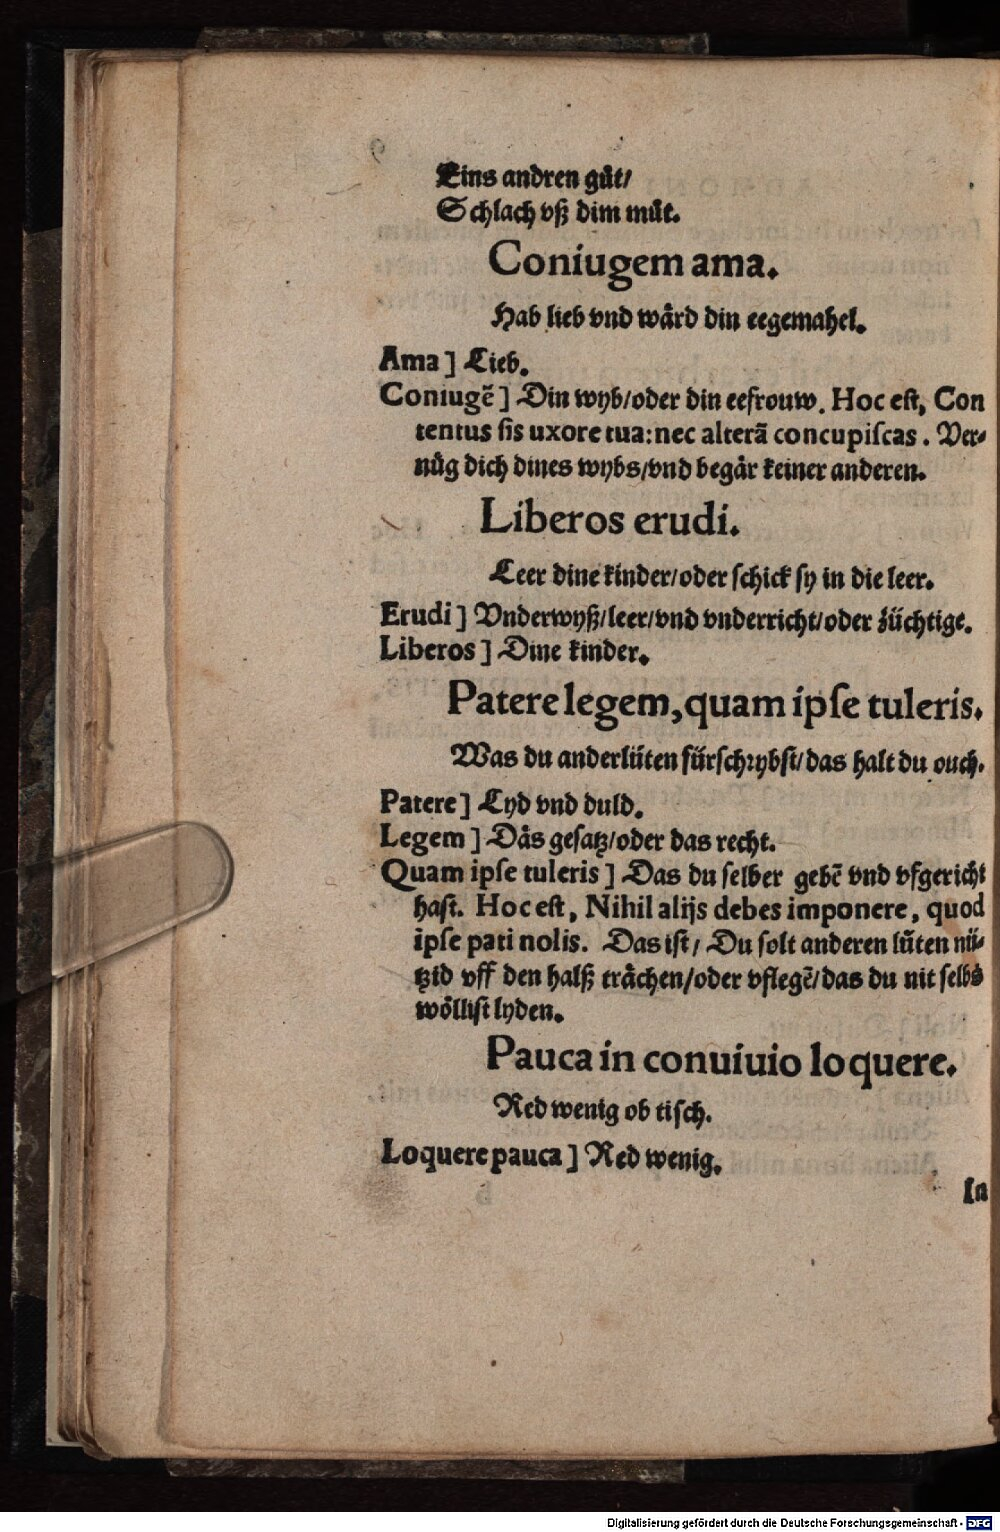 Eins andren guͤt/
Schlach vß dim muͤt.
Coniugem ama.
Hab lieb vnd waͤrd din eegemahel.
Ama] Lieb.
Coniugẽ] Din wyb/oder din eefrouw. Hoc est, Con
tentus sis uxore tua: nec alterã concupiscas. Ver-
nuͤg dich dines wybs/vnd begaͤr keiner anderen.
Liberos erudi.
Leer dine kinder/oder schick sy in die leer.
Erudi] Vnderwyß/leer/vnd vnderricht/oder züchtige.
Liberos] Dine kinder.
Patere legem, quam ipse tuleris.
Was du anderlüten fürschrybst/das halt du ouch.
Patere] Lyd vnd duld.
Legem] Das gesatz/oder das recht.
Quam ipse tuleris] Das du selber gebẽ vnd vfgericht
hast. Hoc est, Nihil alijs debes imponere, quod
ipse pati nolis. Das ist/ Du solt anderen lüten nü-
tzid vff den halß traͤchen/oder vflegẽ/das du nit selbs
woͤllist lyden.
Pauca in conuiuio loquere.
Red wenig ob tisch.
Loquere pauca] Red wenig.
In
Digitalisierung gefördert durch die Deutsche Forschungsgemeinschaft - DFG